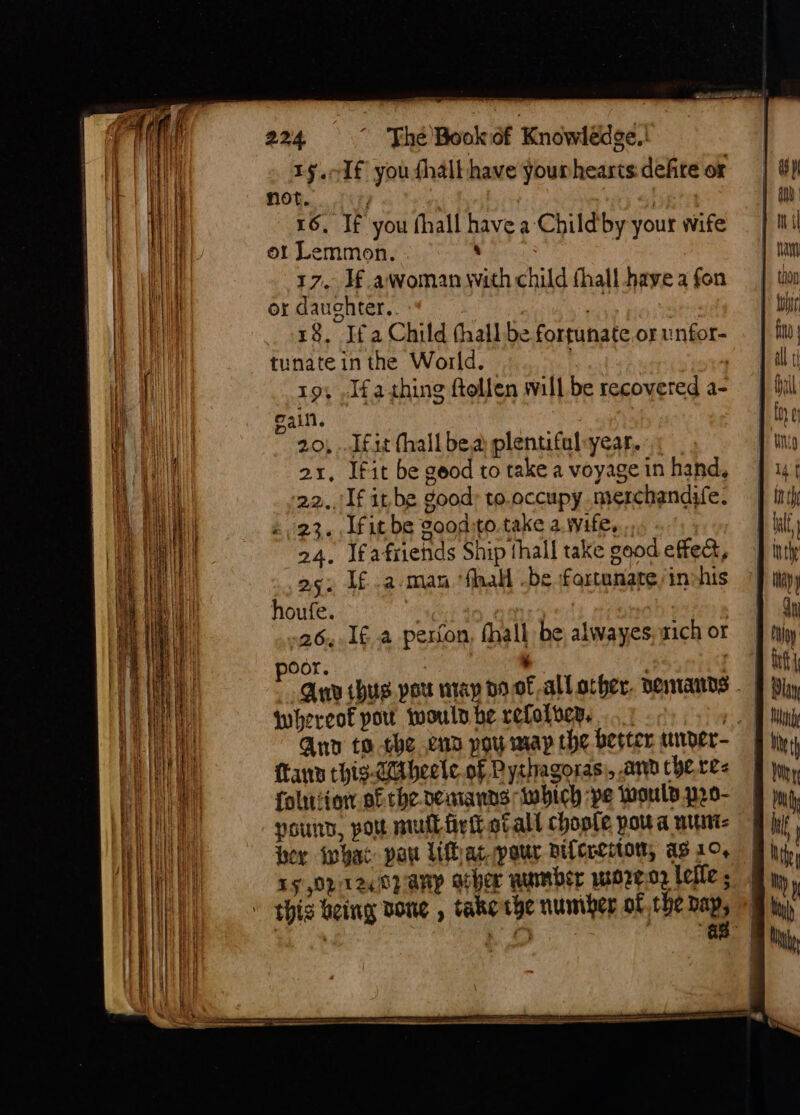 224 The Book of Knowledge.
15. If you ſhall have your hearts deſire or
not.
16. If you ſhall have a Child by your wife
or Lemmon.
17. If a woman with child ſhall have a ſon
or daughter.
18. If a Child ſhall be fortunate or unfor-
tunate in the World.
19. If a thing ſtollen will be recovered a-
gain.
20. If it ſhall be a plentiful year.
21. If it be good to take a voyage in hand.
22. If it be good to occupy merchandiſe.
23. If it be good to take a wife.
24. If a friends Ship ſhall take good effect,
25. If a man ſhall be fortunate in his
houſe.
26. If a perſon ſhall be alwayes rich or
poor.
And thus you may do of all other demands
whereof you would be reſolved.
And to the end you may the better under-
ſtand this Wheele of Pythagoras, and the re-
ſolution of the demands which ye would pro-
pound, you muſt firſt of all chooſe you a num-
ber what you liſt at your diſcretion, as 10,
15, or 12, or any other number more or leſſe;
this being done, take the number of the day,
as